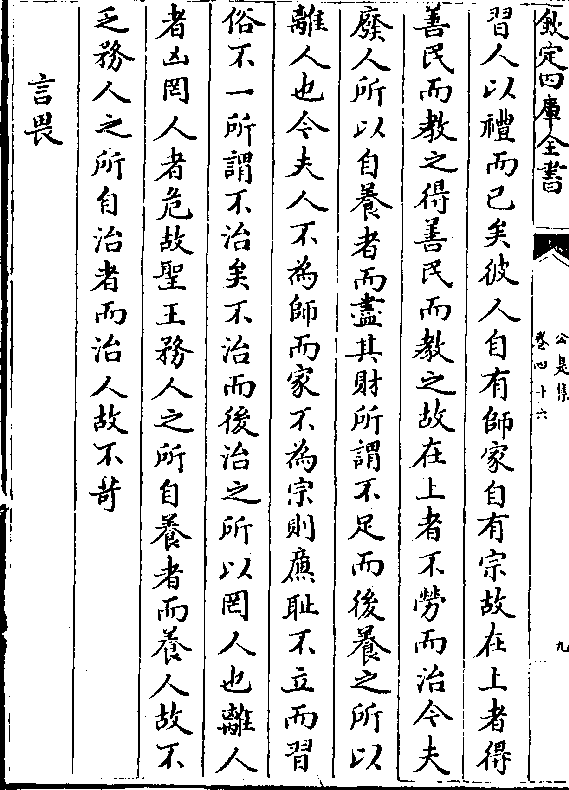 欽定四庫全書
公是集
卷四十六
九
習人以禮而已矣彼人自有師家自有宗故在上者得
善民而教之得善民而教之故在上者不勞而治今夫
廢人所以自養者而盡其財所謂不足而後養之所以
離人也今夫人不為師而家不為宗則廉恥不立而習
俗不一所謂不治矣不治而後治之所以罔人也離人
者凶罔人者危故聖王務人之所自養者而養人故不
乏務人之所自治者而治人故不苛
言畏